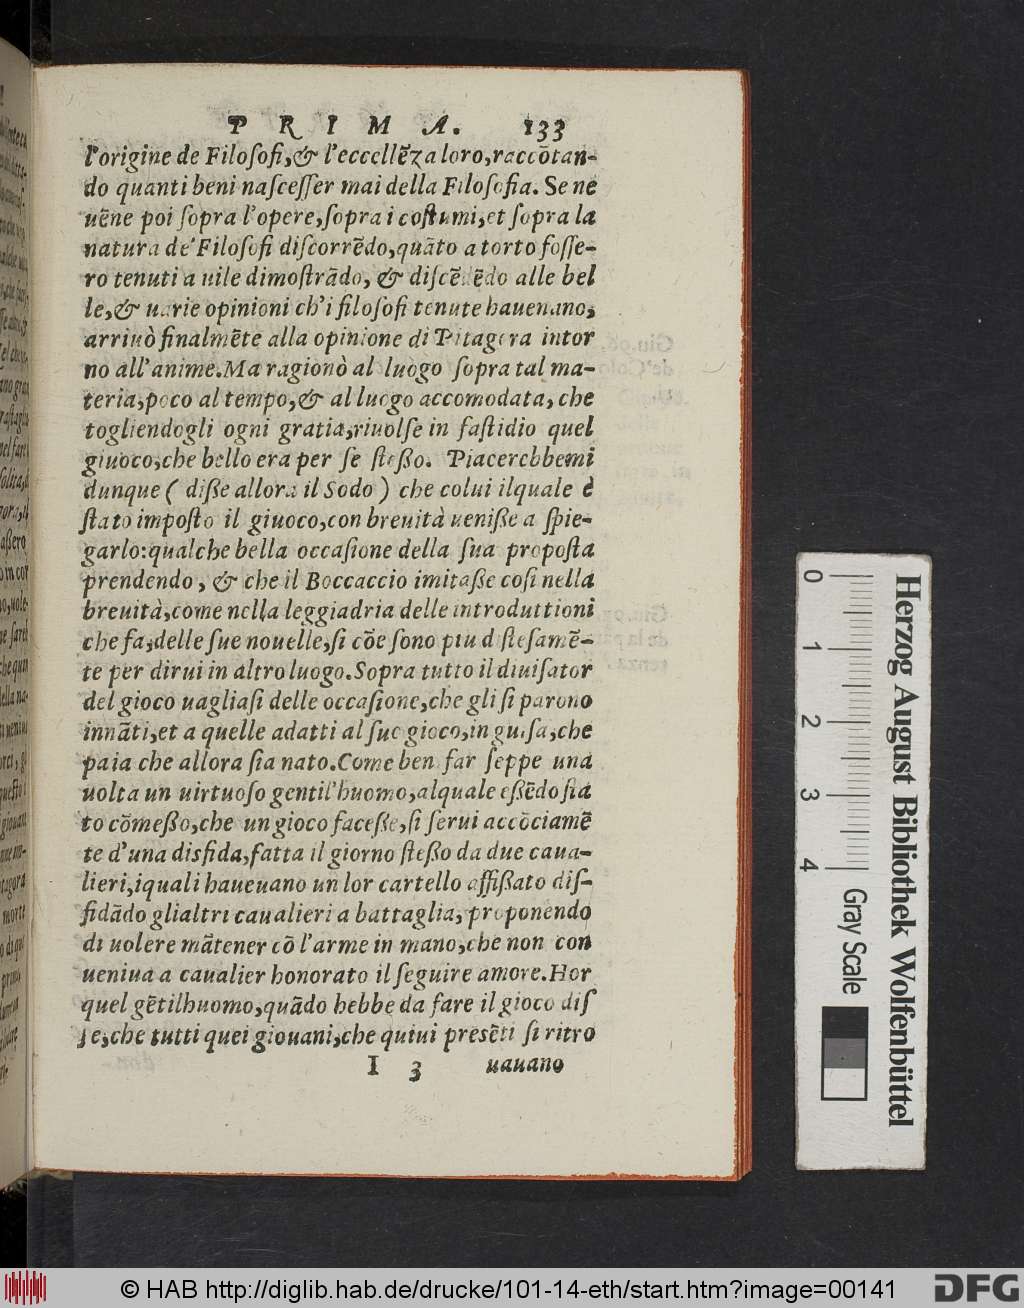 P R I M A. 133
l'origine de Filoſofi,& l'eccellēza loro,raccōtan-
do quanti beni naſceſſer mai della Filoſofia. Se ne
uēne poi ſopra l'opere,ſopra i coſtumi,et ſopra la
natura de' Filoſofi diſcorrēdo,quāto a torto foſſe-
ro tenuti a uile dimoſtrādo, & diſcēdēdo alle bel
le,& uarie opinioni ch'i filoſofi tenute haueuano,
arriuò finalmēte alla opinione di Pitagora intor
no all'anime.Ma ragionò al luogo ſopra tal ma-
teria,poco al tempo,& al luogo accomodata, che
togliendogli ogni gratia,riuolſe in faſtidio quel
giuoco,che bello era per ſe ſteßo. Piacerebbemi
dunque ( diße allora il Sodo ) che colui ilquale è
ſtato impoſto il giuoco,con breuità ueniße a ſpie-
garlo:qualche bella occaſione della ſua propoſta
prendendo, & che il Boccaccio imitaße coſi nella
breuità,come nella leggiadria delle introduttioni
che fa,delle ſue nouelle,ſi cōe ſono piu diſteſamē-
te per dirui in altro luogo.Sopra tutto il diuiſator
del gioco uagliaſi delle occaſione,che gli ſi parono
innāti,et a quelle adatti al ſuo gioco,in guiſa,che
paia che allora ſia nato.Come ben far ſeppe una
uolta un uirtuoſo gentil'huomo,alquale eßēdo ſta
to cōmeßo,che un gioco faceße,ſi ſerui accōciamē
te d'una disfida,fatta il giorno ſteßo da due caua-
lieri,iquali haueuano un lor cartello affißato diſ-
fidādo glialtri caualieri a battaglia, proponendo
di uolere mātener cō l'arme in mano,che non con
ueniua a caualier honorato il ſeguire amore.Hor
quel gētilhuomo,quādo hebbe da fare il gioco diſ
ſe,che tutti quei giouani,che quiui preſēti ſi ritro
I 3 uauano
0 1 2 3 4
Herzog August Bibliothek Wolfenbüttel
Gray Scale
© HAB http://diglib.hab.de/drucke/101-14-eth/start.htm?image=00141
DFG